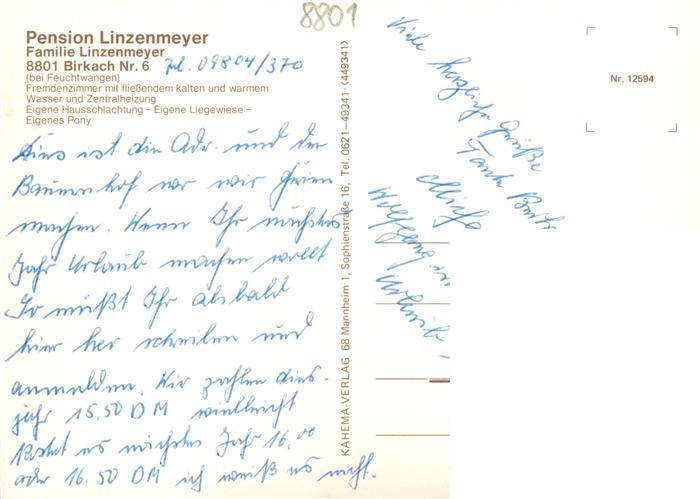 8801
Pension Linzenmeyer
Familie Linzenmeyer
8801 Birkach Nr. 6 Tel. 09804/370
(bei Feuchtwangen)
Fremdenzimmer mit fließendem kalten und warmem
Wasser und Zentralheizung
Eigene Hausschlachtung – Eigene Liegewiese –
Eigenes Pony
Dies ist die Adr. und der
Bauernhof wo wir Ferien
machen. Wenn Ihr nächstes
Jahr Urlaub machen wollt
So müßt Ihr alsbald
hier her schreiben und
anmelden. Wir zahlen dies-
jahr 15.50 DM vielleicht
kostet es nächstes Jahr 16.00
oder 16.50 DM ich weiß es nicht.
KAHEMA-VERLAG 68 Mannheim 1, Sophienstraße 16, Tel. 0621–49341·(449341)
Viele herzliche Grüße
Tante
Wolfgang
Urlaub
Nr. 12594